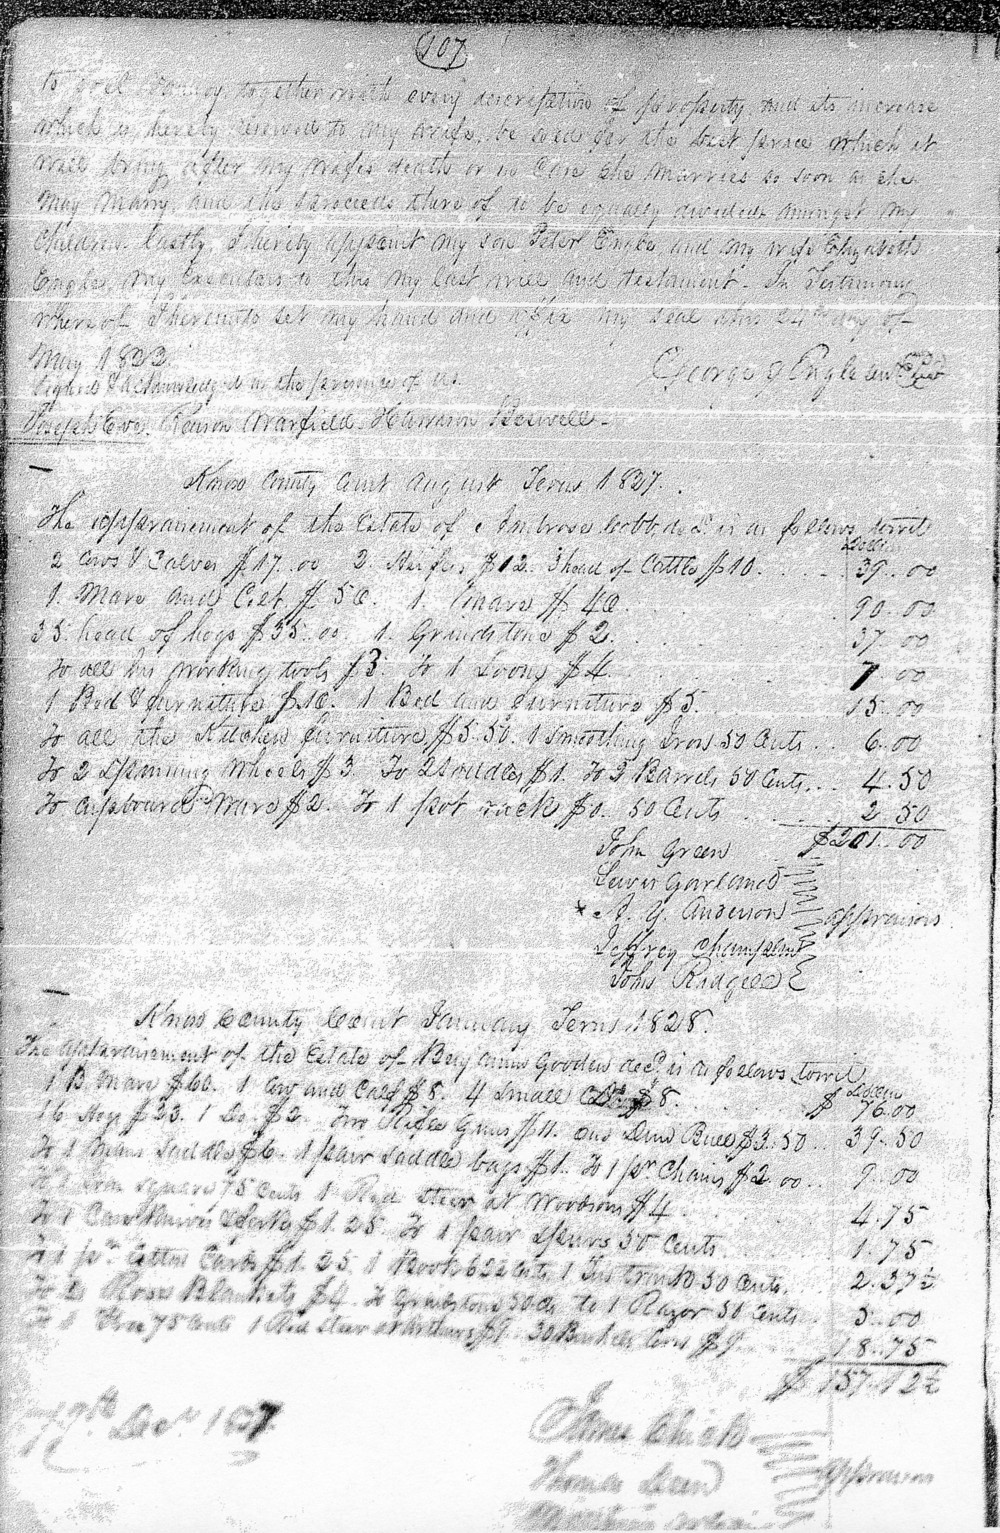 107
together with every description of property and its increase
which is hereby to my wife, be sold for the best price which it
will bring after my wifes death or in Case she Marries so soon as she
May Marry, and the proceeds there of to be equally divided amongst my
Children. Lastly, I hereby appoint my son Peter Engle and my wife Elizabeth
Engle my Executors to this my last will and testament. In Testimony
whereof I hereunto set my hand and affix my seal this 24th day of
May 1822. George Engle
Signed & acknowledged in the presence of us.
Joseph Eve. Reason Warfield. Harrison
Knox County August Term 1827.
The appraisement of the Estate of Ambrose Cobb, decd is as follows towit
Dollars
2 Cows & Calves $17.00 2 Heifers $12. 3 head of Cattle $10. 39.00
1. Mare and Colt $50. 1. Mare $40. 90.00
35 head of hogs $35.00. 1. Grindstone $2. 37.00
To all his working tools $3. To 1 Loom $4. 7.00
1 Bed & furniture $10. 1 Bed and furniture $5. 15.00
To all the Kitchen furniture $5.50. 1 Smoothing Iron 50 Cents.. 6.00
To 2 Spinning Wheels $3. To 2 Saddles $1. To 3 Barrels 50 Cents... 4.50
To Cupboard Ware $2. To 1 pot rack $0.. 50 Cents 2.50
John Green $201..00
Lewis Garland
A. Y. Anderson appraisors
Jeffrey Champlin
John
Knox County Court January Term 1828.
The appraisement of the Estate of Benjamin Gooden decd. is as follows towit
Dollars
1 B. Mare $60. 1 Cow and Calf $8. 4 Small $8. $76.00
16 Hogs $23. 1 Do. $2. Two Rifle Guns $11. one $3.50.. 39.50
To 1 Mans Saddle $6. 1 pair Saddle bags $1. To 1 pr. Chains $2.00.. 9.00
To 1 Iron Square 75 Cents 1 Red Steer at Woodsons $4 4.75
To 1 Knives & forks $1.25. To 1 pair Spurs 50 Cents 1.75
To 1 pr. Cotton Cards $1.25. 1 Book 62½ Cents, 1 Tin trunk 50 Cents. 2.37½
To 2 Rose Blankets $4. To Grindstone 50 cts to 1 Razor 50 Cents. 5.00
To 1 75 Cents 1 Red Steer at Arthurs $9. 30 Bushels Corn $9. 18.75
$157.12½
9th Decr. 1827
James
Thomas appraisors